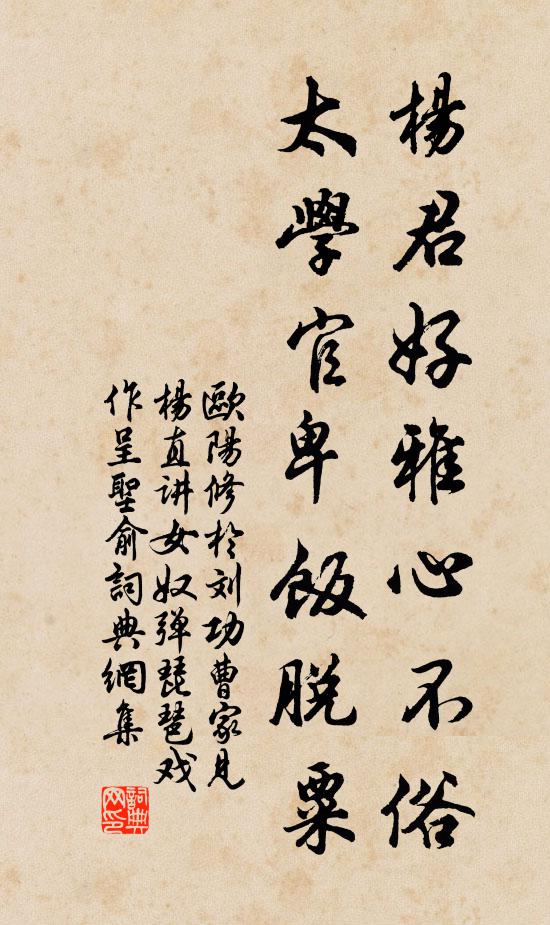 楊君好雅心不俗
太學官卑飯脫粟
歐陽修於刘功曹家見
楊直讲女奴弹琵琶戏
作呈聖俞詞典網集
詞典網印